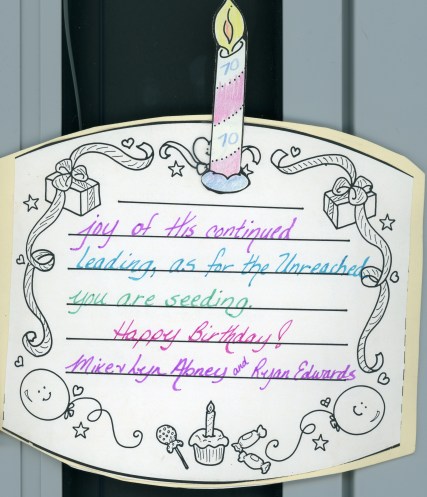 70
70
joy of His continued
leading, as for the Unreached
you are seeding.
Happy Birthday!
Mike & Lyn Abney and Ryan Edwards